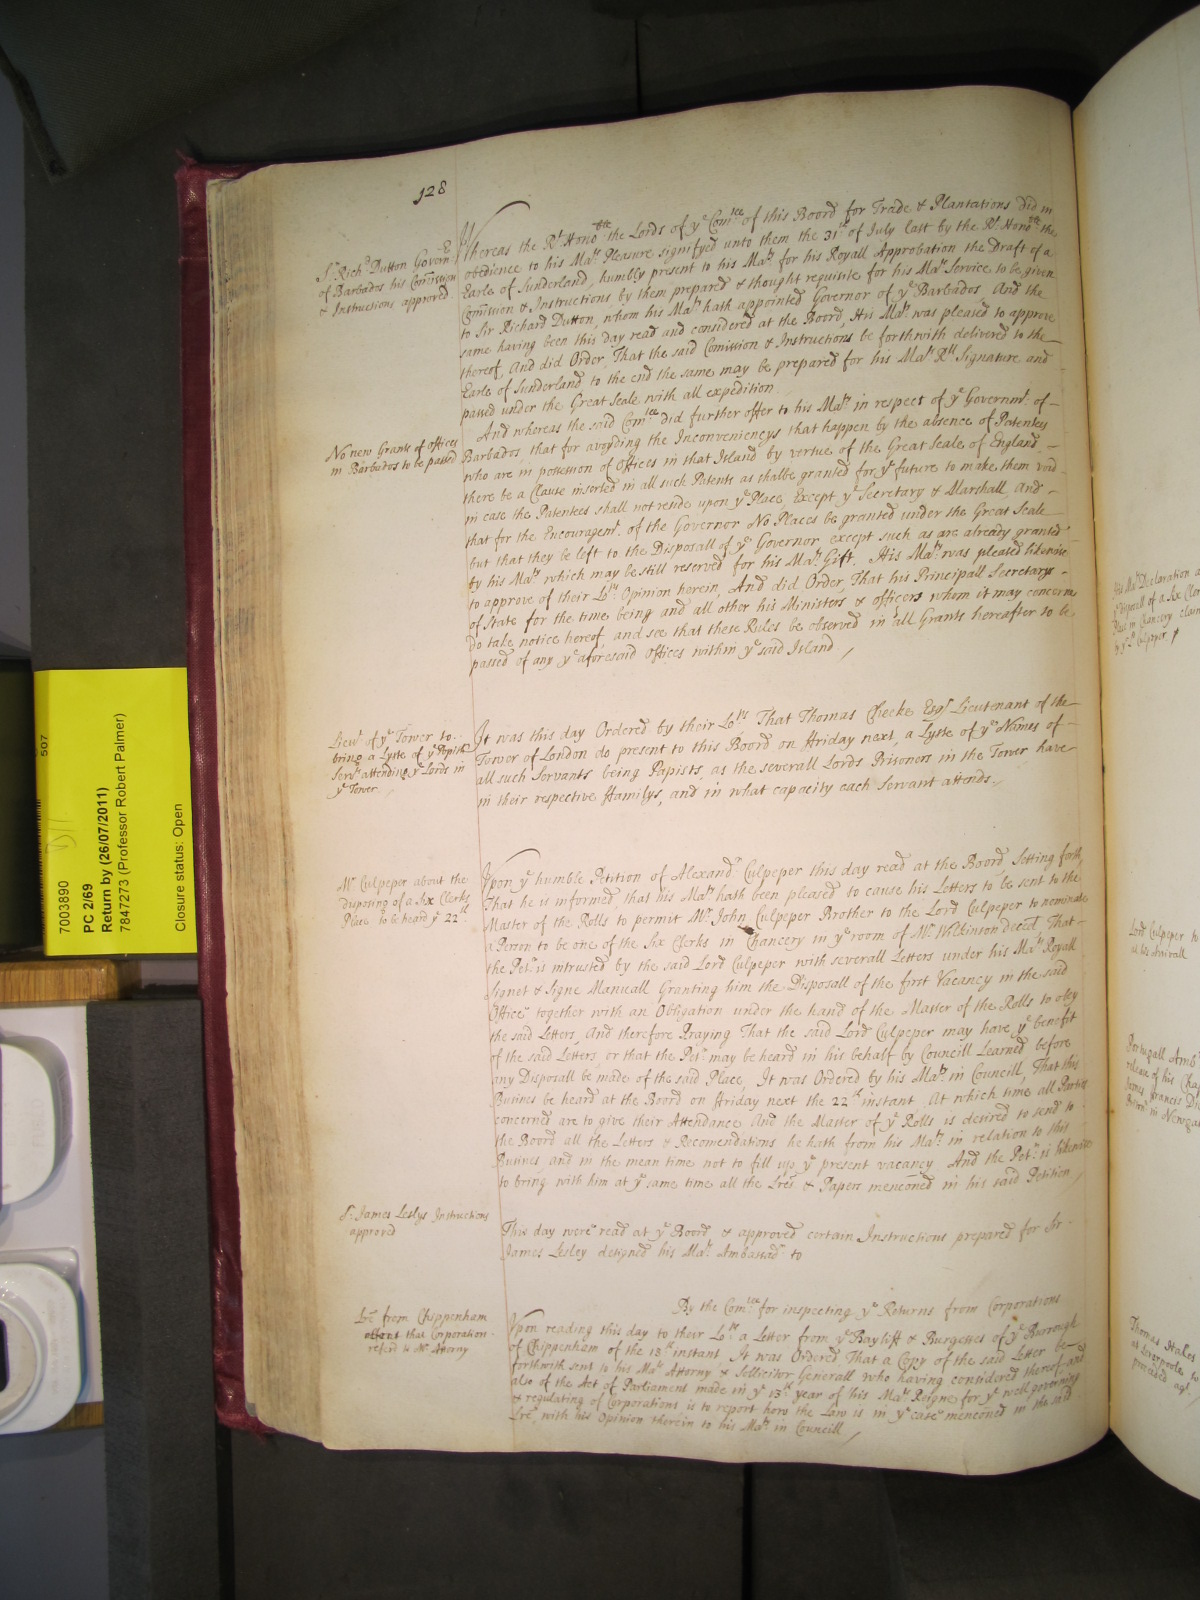 128
Sr. Richd. Dutton Govern.r
of Barbados his Comission
& Instructions approved.
Whereas the Rt. Honoble. the Lords of ye Comtee of this Board for Trade & Plantations did in
obedience to his Maty. Pleasure signifyed unto them the 31th of July last by the Rt. Honoble. the
Earle of Sunderland, humbly present to his Maty. for his Royall Approbation the Draft of a
Comission & Instructions, by them prepared & thought requisite for his Maty. Service to be given
to Sir Richard Dutton, whom his Maty. hath appointed Governor of ye Barbados, And the
same having been this day read and considered at the Board, His Maty. was pleased to approve
thereof, And did Order, That the said Comission & Instructions be forthwith delivered to the
Earle of Sunderland to the end the same may be prepared for his Maty. Rll. Signature and
passed under the Great Seale with all expedition
No new Grants of offices
in Barbados to be passed
And whereas the said Comtee. did further offer to his Maty. in respect of ye Governmt. of
Barbados, that for avoyding the Inconveniencys that happen by the absence of Patentees
who are in possession of Offices in that Island by vertue of the Great Seale of England
there be a Clause inserted in all such Patents as shalbe granted for ye future to make them void
in case the Patentees shall not reside upon ye Place, Except ye Secretary & Marshall, And
that for the Encouragemt. of the Governor No Places be granted under the Great Seale
but that they be left to the Disposall of ye Governor except such as are already granted
by his Maty. which may be still reserved for his Maty. Gift. His Maty. was pleased likewise
to approve of their Lopps. Opinion herein, And did Order, That his Principall Secretarys
of State for the time being and all other his Ministers & officers whom it may concerne
do take notice hereof, and see that these Rules be observed in all Grants hereafter to be
passed of any ye aforesaid Offices within ye said Island
Lieut. of ye Tower to
bring a Lyste of ye Popish
Servts. attending ye Lords in
ye Tower
It was this day Ordered by their Lopps. That Thomas Cheeke Esqr. Lieutenant of the
Tower of London do present to this Board on ffriday next a Lyste of ye Names of
all such Servants being Papists, as the severall Lords Prisoners in the Tower have
in their respective ffamilys, and in what capacity each Servant attends.
Mr. Culpeper about the
disposing of a Six Clerks
Place to be heard ye 22th
Upon ye humble Petition of Alexandr. Culpeper this day read at the Board Setting forth,
That he is informed, that his Maty. hath been pleased to cause his Letters to be sent to the
Master of the Rolls to permit Mr. John Culpeper Brother to the Lord Culpeper to nominate
a Person to be one of the Six Clerks in Chancery in ye room of Mr. Wilkinson deced, That
the Petr. is intrusted by the said Lord Culpeper with severall Letters under his Maty. Royall
Signet & Signe Manuall Granting him the Disposall of the first Vacancy in the said
Office, together with an Obligation under the hand of the Master of the Rolls to obey
the said Letters, And therefore Praying That the said Lord Culpeper may have ye benefit
of the said Letters or that the Petr. may be heard in his behalf by Councill Learned before
any Disposall be made of the said Place, It was Ordered by his Maty. in Councill, That this
Busines be heard at the Board on ffriday next the 22th instant At which time all Parties
concerned are to give their Attendance And the Master of ye Rolls is desired to send to
the Board all the Letters & Recomendations he hath from his Maty. in relation to this
Busines, and in the mean time not to fill up ye present vacancy And the Petr. is likewise
to bring with him at ye same time all the Lres & Papers menconed in his said Petition
Sr. James Leslys Instructions
approved
This day were read at ye Board & approved certain Instructions prepared for Sir
James Lesley designed his Maty. Ambassadr. to
By the Comtee for inspecting ye Returns from Corporations
Lre from Chippenham
about that Corporation
referd to Mr. Attorny
Upon reading this day to their Lopps. a Letter from ye Bayliff & Burgesses of ye Burrough
of Chippenham of the 13th instant It was Ordered That a Copy of the said Letter be
forthwith sent to his Maty. Attorny & Sollicitor Generall who having considered thereof and
also of the Act of Parliament made in ye 13th year of his Maty. Reigne for ye well governing
& regulating of Corporations is to report how the Law is in ye case menconed in the said
Lre, with his Opinion therein to his Maty. in Councill
7003890
507
PC 2/69
Return by (26/07/2011)
7847273 (Professor Robert Palmer)
Closure status: Open
His Maty. Declaration
ye Disposall of a Six Cler
Place in Chancery
by ye Ld. Culpeper
Lord Culpeper
Portugall Amb
release of his
James Francis
Thomas Hales
at Leverpoole to
proceeded agt.